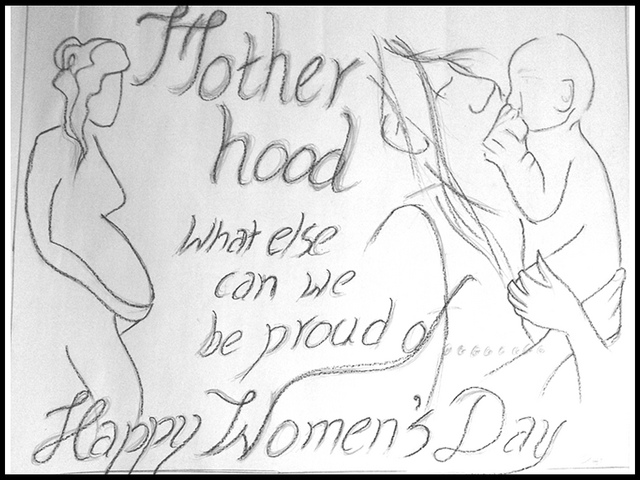 Mother
hood
What else
can we
be proud of
Happy Women's Day